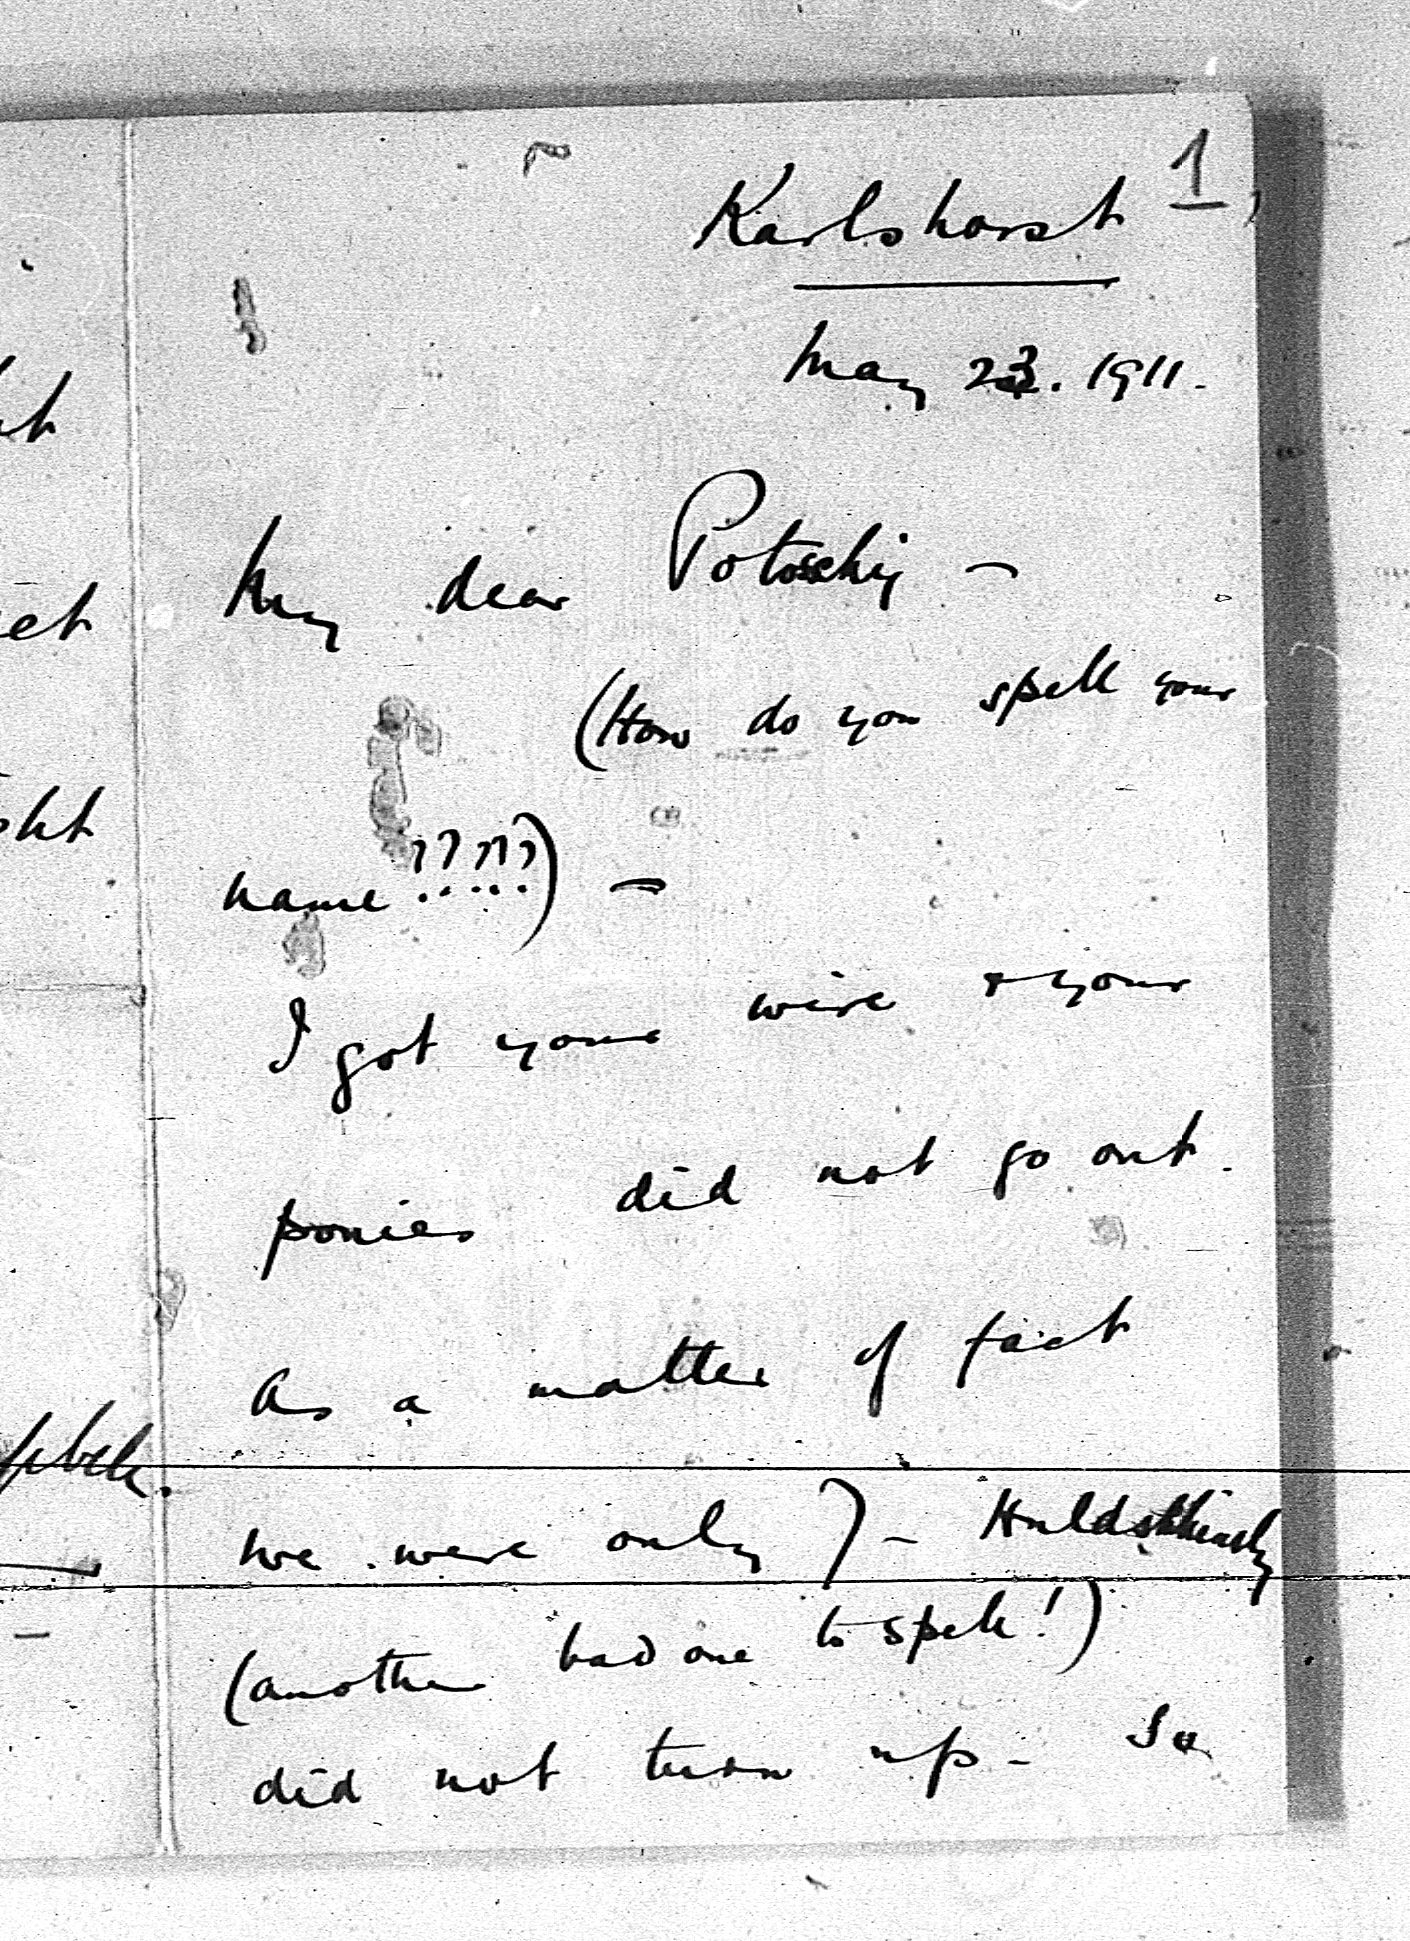 1
Karlshorst
May 23. 1911.
My dear Potoschij —
(How do you spell your
name ?????) —
I got your wire & your
ponies did not go out.
As a matter of fact
we were only 7 - Huldschinsky
(another bad one to spell!)
did not turn up - So